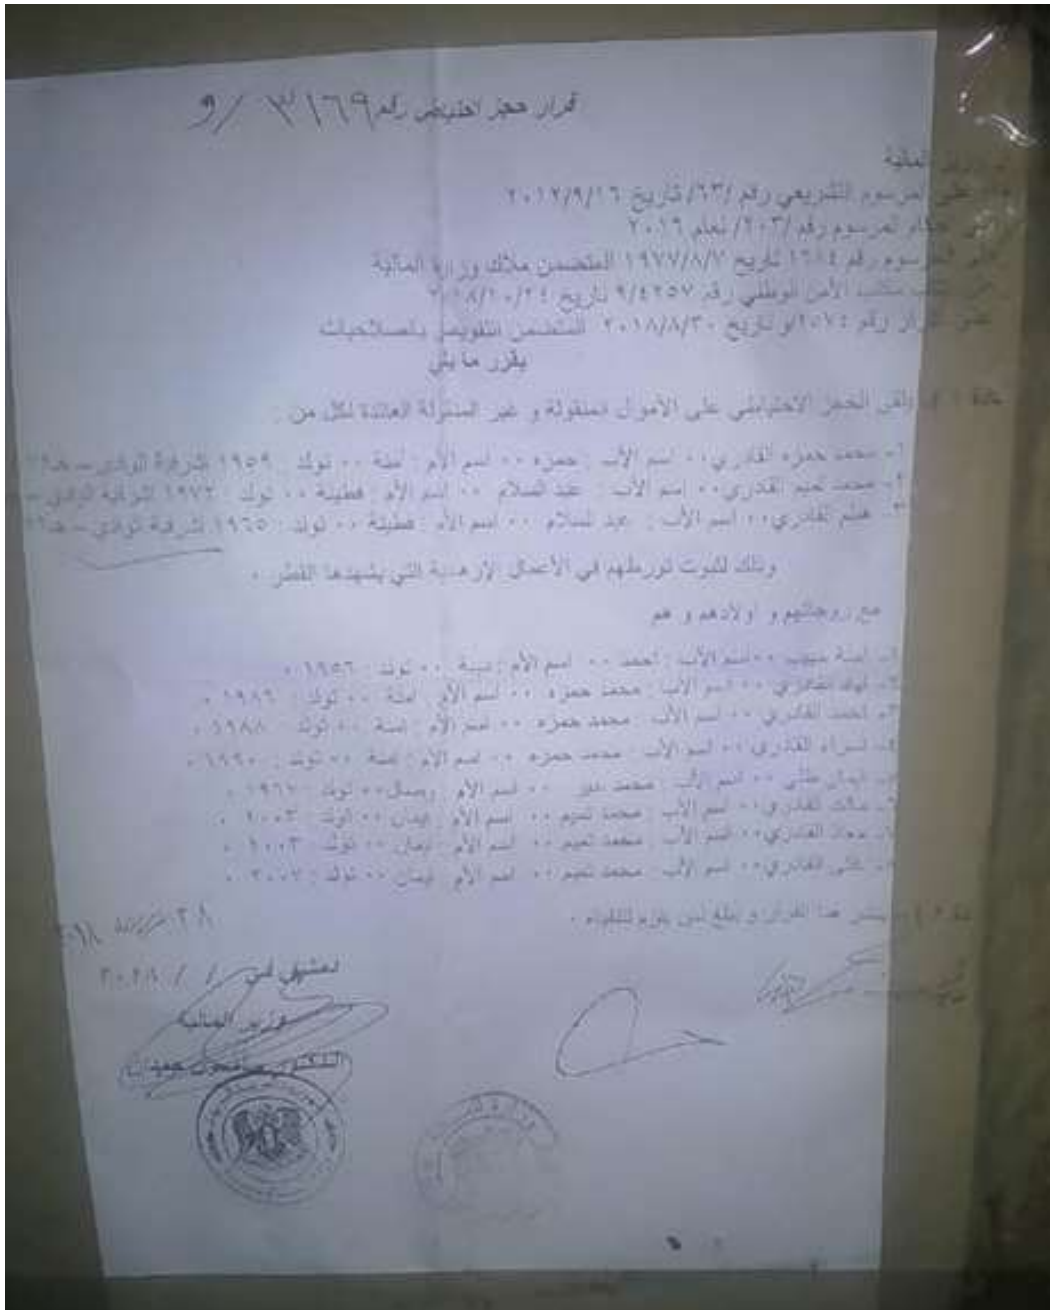 قرار حجز احتياطي رقم ٣١٦٩ /و
وزير المالية
على المرسوم التشريعي رقم /٦٣/ تاريخ ٢٠١٢/٩/١٦
المرسوم رقم /٢٠٣/ لعام ٢٠١٦
المرسوم رقم ١٦٨٤ تاريخ ١٩٧٧/٨/٧ المتضمن ملاك وزارة المالية
كتاب مكتب الأمن الوطني رقم ٩/٤٢٥٧ تاريخ ٢٠١٨/١٠/٢٤
على القرار رقم ٢٠٧٤/و تاريخ ٢٠١٨/٨/٣٠ المتضمن التفويض بالصلاحيات
يقرر ما يلي
مادة ١ - يلقى الحجز الاحتياطي على الأموال المنقولة و غير المنقولة العائدة لكل من :
١- محمد حمزه القادري ٠٠ اسم الأب : حمزه ٠٠ اسم الأم : امنة ٠٠ تولد : ١٩٥٩ اشرفية الوادي –
٢- محمد تميم القادري ٠٠ اسم الأب : عبد السلام ٠٠ اسم الأم : فطينة ٠٠ تولد : ١٩٧٢ اشرفية الوادي –
٣- القادري ٠٠ اسم الأب : عبد السلام ٠٠ اسم الأم : فطينة ٠٠ تولد : ١٩٦٥ اشرفية الوادي –
وذلك لثبوت تورطهم في الأعمال الإرهابية التي يشهدها القطر ٠
مع زوجاتهم و اولادهم و هم
١- امنة حبيب ٠٠ اسم الأب : احمد ٠٠ اسم الأم : ٠٠ تولد : ١٩٥٦ ٠
٢- القادري ٠٠ اسم الأب : محمد حمزه ٠٠ اسم الأم : امنة ٠٠ تولد : ١٩٨٦ ٠
٣- احمد القادري ٠٠ اسم الأب : محمد حمزه ٠٠ اسم الأم : امنة ٠٠ تولد : ١٩٨٨ ٠
٤- اسراء القادري ٠٠ اسم الأب : محمد حمزه ٠٠ اسم الأم : امنة ٠٠ تولد : ١٩٩٠ ٠
٥- ايمان ٠٠ اسم الأب : محمد ٠٠ اسم الأم : ٠٠ تولد : ١٩٦٧ ٠
٦- القادري ٠٠ اسم الأب : محمد تميم ٠٠ اسم الأم : ايمان ٠٠ تولد : ٢٠٠٣ ٠
٧- معاذ القادري ٠٠ اسم الأب : محمد تميم ٠٠ اسم الأم : ايمان ٠٠ تولد : ٢٠٠٣ ٠
٨- القادري ٠٠ اسم الأب : محمد تميم ٠٠ اسم الأم : ايمان ٠٠ تولد : ٢٠٠٧ ٠
مادة ٢ - ينشر هذا القرار و يبلغ لمن يلزم لتنفيذه ٠
٢٨
دمشق في / / ٢٠١٨
وزير المالية
الدكتور مأمون حمدان